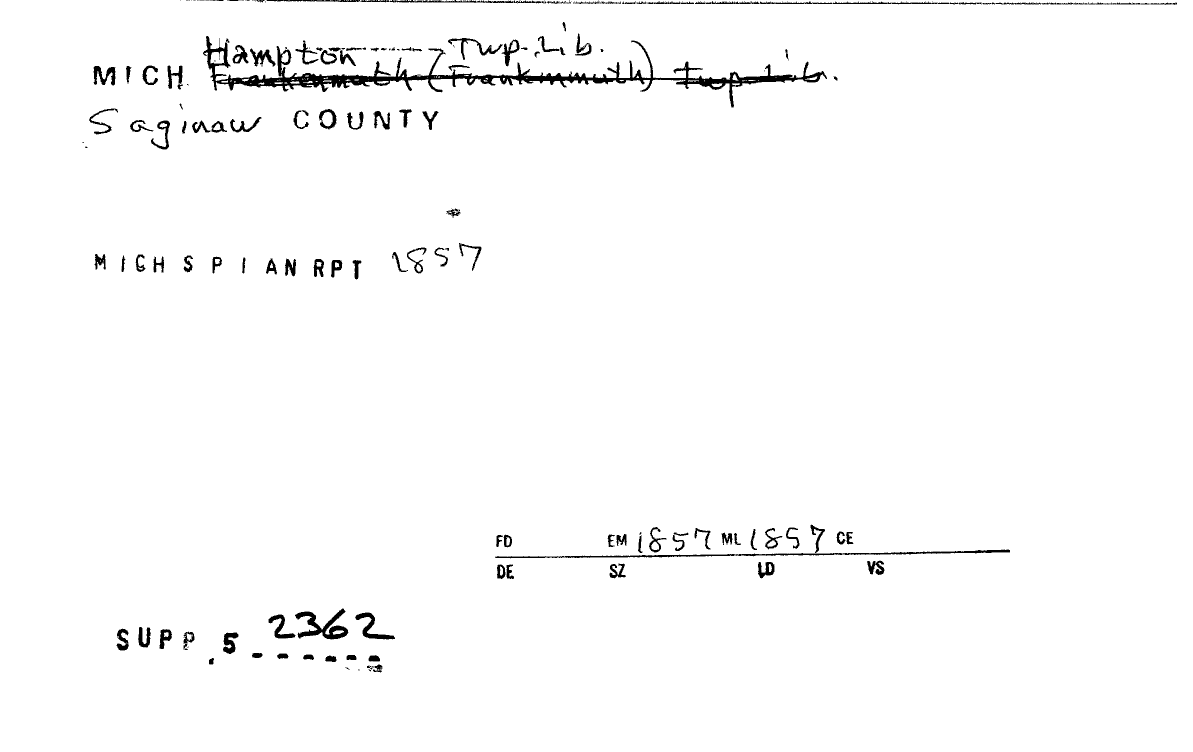 Hampton Twp. Lib.
MICH. Frankenmuth (Frankinmuth) Twp Lib.
Saginaw COUNTY
MICH S P I AN RPT 1857
FD EM 1857 ML 1857 CE
DE SZ LD VS
SUPP. 5 2362